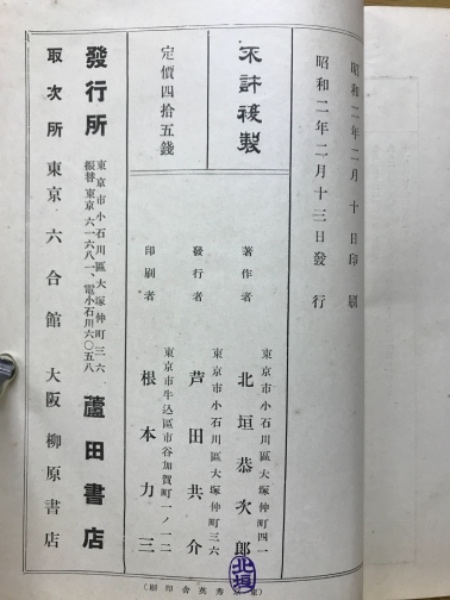 昭和二年二月十日印刷
昭和二年二月十三日發行
不許複製
定價四拾五錢
著作者
東京市小石川區大塚仲町四一
北垣恭次郎
北垣
發行者
東京市小石川區大塚仲町三六
芦田共介
印刷者
東京市牛込區市谷加賀町一ノ一二
根本力三
發行所
東京市小石川區大塚仲町三六
振替東京六一六八一、電小石川六〇五八
蘆田書店
取次所
東京 六合館
大阪 柳原書店
秀英舍印刷)